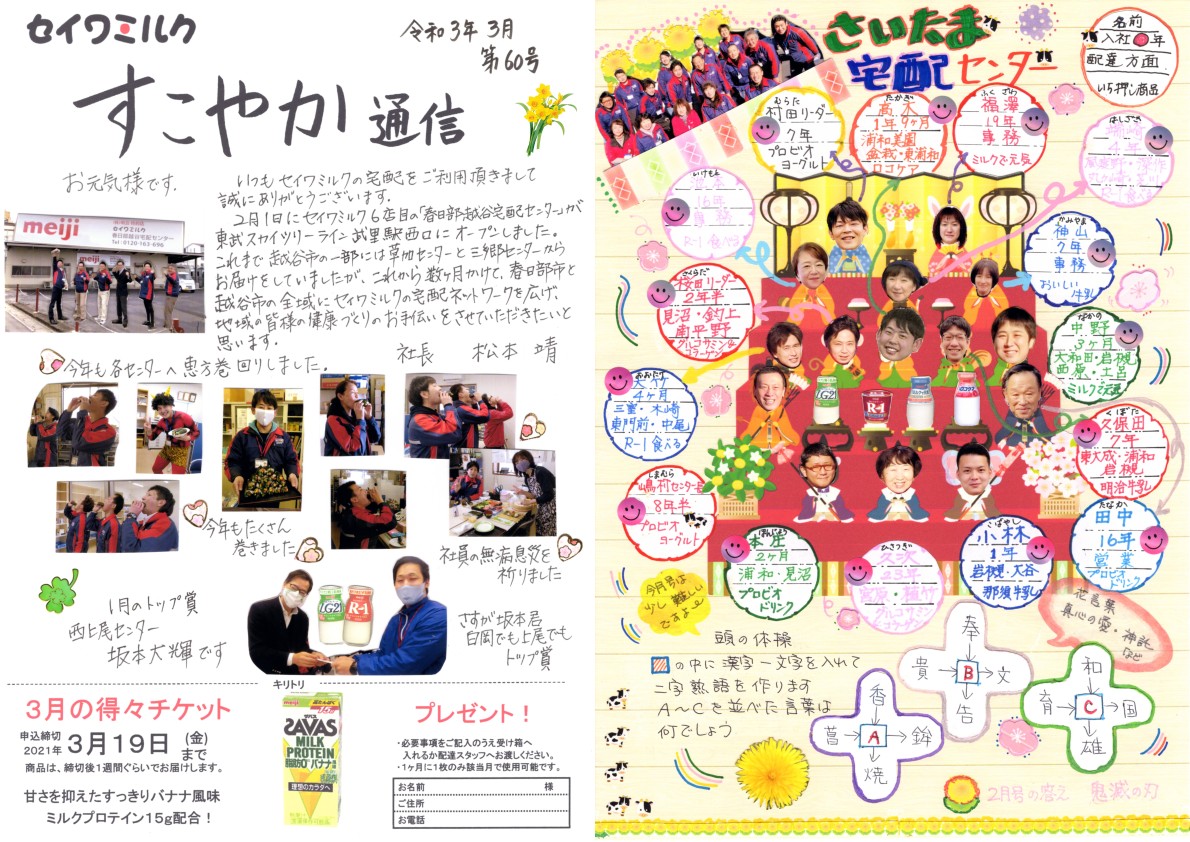 セイワミルク
令和3年3月
第60号
すこやか通信
お元気様です.
いつもセイワミルクの宅配をご利用頂きまして
誠にありがとうございます.
2月1日にセイワミルク6店目の「春日部・越谷宅配センター」が
東武スカイツリーライン武里駅西口にオープンしました。
これまで越谷市の一部には草加センターと三郷センターから
お届けをしていましたが、これから数ヶ月かけて、春日部市と
越谷市の全域にセイワミルクの宅配ネットワークを広げ、
地域の皆様の健康づくりのお手伝いをさせていただきたいと
思います.
社長 松本 靖
meiji
セイワミルク
春日部越谷宅配センター
Tel:0120-163-696
今年も各センターへ恵方巻回りしました.
今年もたくさん
巻きました
社員の無病息災を
祈りました
1月のトップ賞
西上尾センター
坂本大輝です
LG21
R-1
さすが坂本君
白岡でも上尾でも
トップ賞
キリトリ
3月の得々チケット
申込締切
2021年 3月19日(金)まで
商品は、締切後1週間ぐらいでお届けします。
甘さを抑えたすっきりバナナ風味
ミルクプロテイン15g配合！
meiji
SAVAS
MILK
PROTEIN
脂肪0 バナナ
理想のカラダへ
プレゼント！
・必要事項をご記入のうえ受け箱へ
入れるか配達スタッフへお渡しください。
・1ヶ月に1枚のみ該当月で使用可能です。
お名前 様
ご住所
お電話
さいたま
宅配センター
名前
入社○年
配達方面
いち押し商品
むらた
村田リーダー
7年
プロビオ
ヨーグルト
たかぎ
高木
1年9ヶ月
浦和美園
盆栽・東浦和
ロコケア
ふくざわ
福澤
19年
事務
ミルクで元気
はしざき
4年
いけもと
16年
事務
R-1 食べる
かみやま
神山
2年
事務
おいしい
牛乳
さくらだ
桜田リーダー
2年半
見沼・釣上
南平野
グルコサミン&
コラーゲン
なかの
中野
3ヶ月
大和田・岩槻
西原・土呂
ミルクで元気
おおたけ
大竹
4ヶ月
三室・木崎
東門前・中尾
R-1 食べる
LG21
R-1
くぼた
久保田
7年
東大成・浦和
岩槻
明治牛乳
しまむら
嶋村センター長
8年半
プロビオ
ヨーグルト
たなか
田中
16年
営業
プロビオ
ドリンク
ほんじょう
本庄
2ヶ月
浦和・見沼
プロビオ
ドリンク
ひさつぎ
久次
23年
宮原・植竹
グルコサミン
コラーゲン
こばやし
小林
1年
岩槻・大谷
那須牛乳
今月号は
少し難しい
ですよ〜
花言葉
真心の愛・神託
など
頭の体操
の中に漢字一文字を入れて
二字熟語を作ります
A～Cを並べた言葉は
何でしょう
香
菖 A 鉾
焼
奉
貴 B 文
告
和
育 C 国
雄
2月号の答え 鬼滅の刃